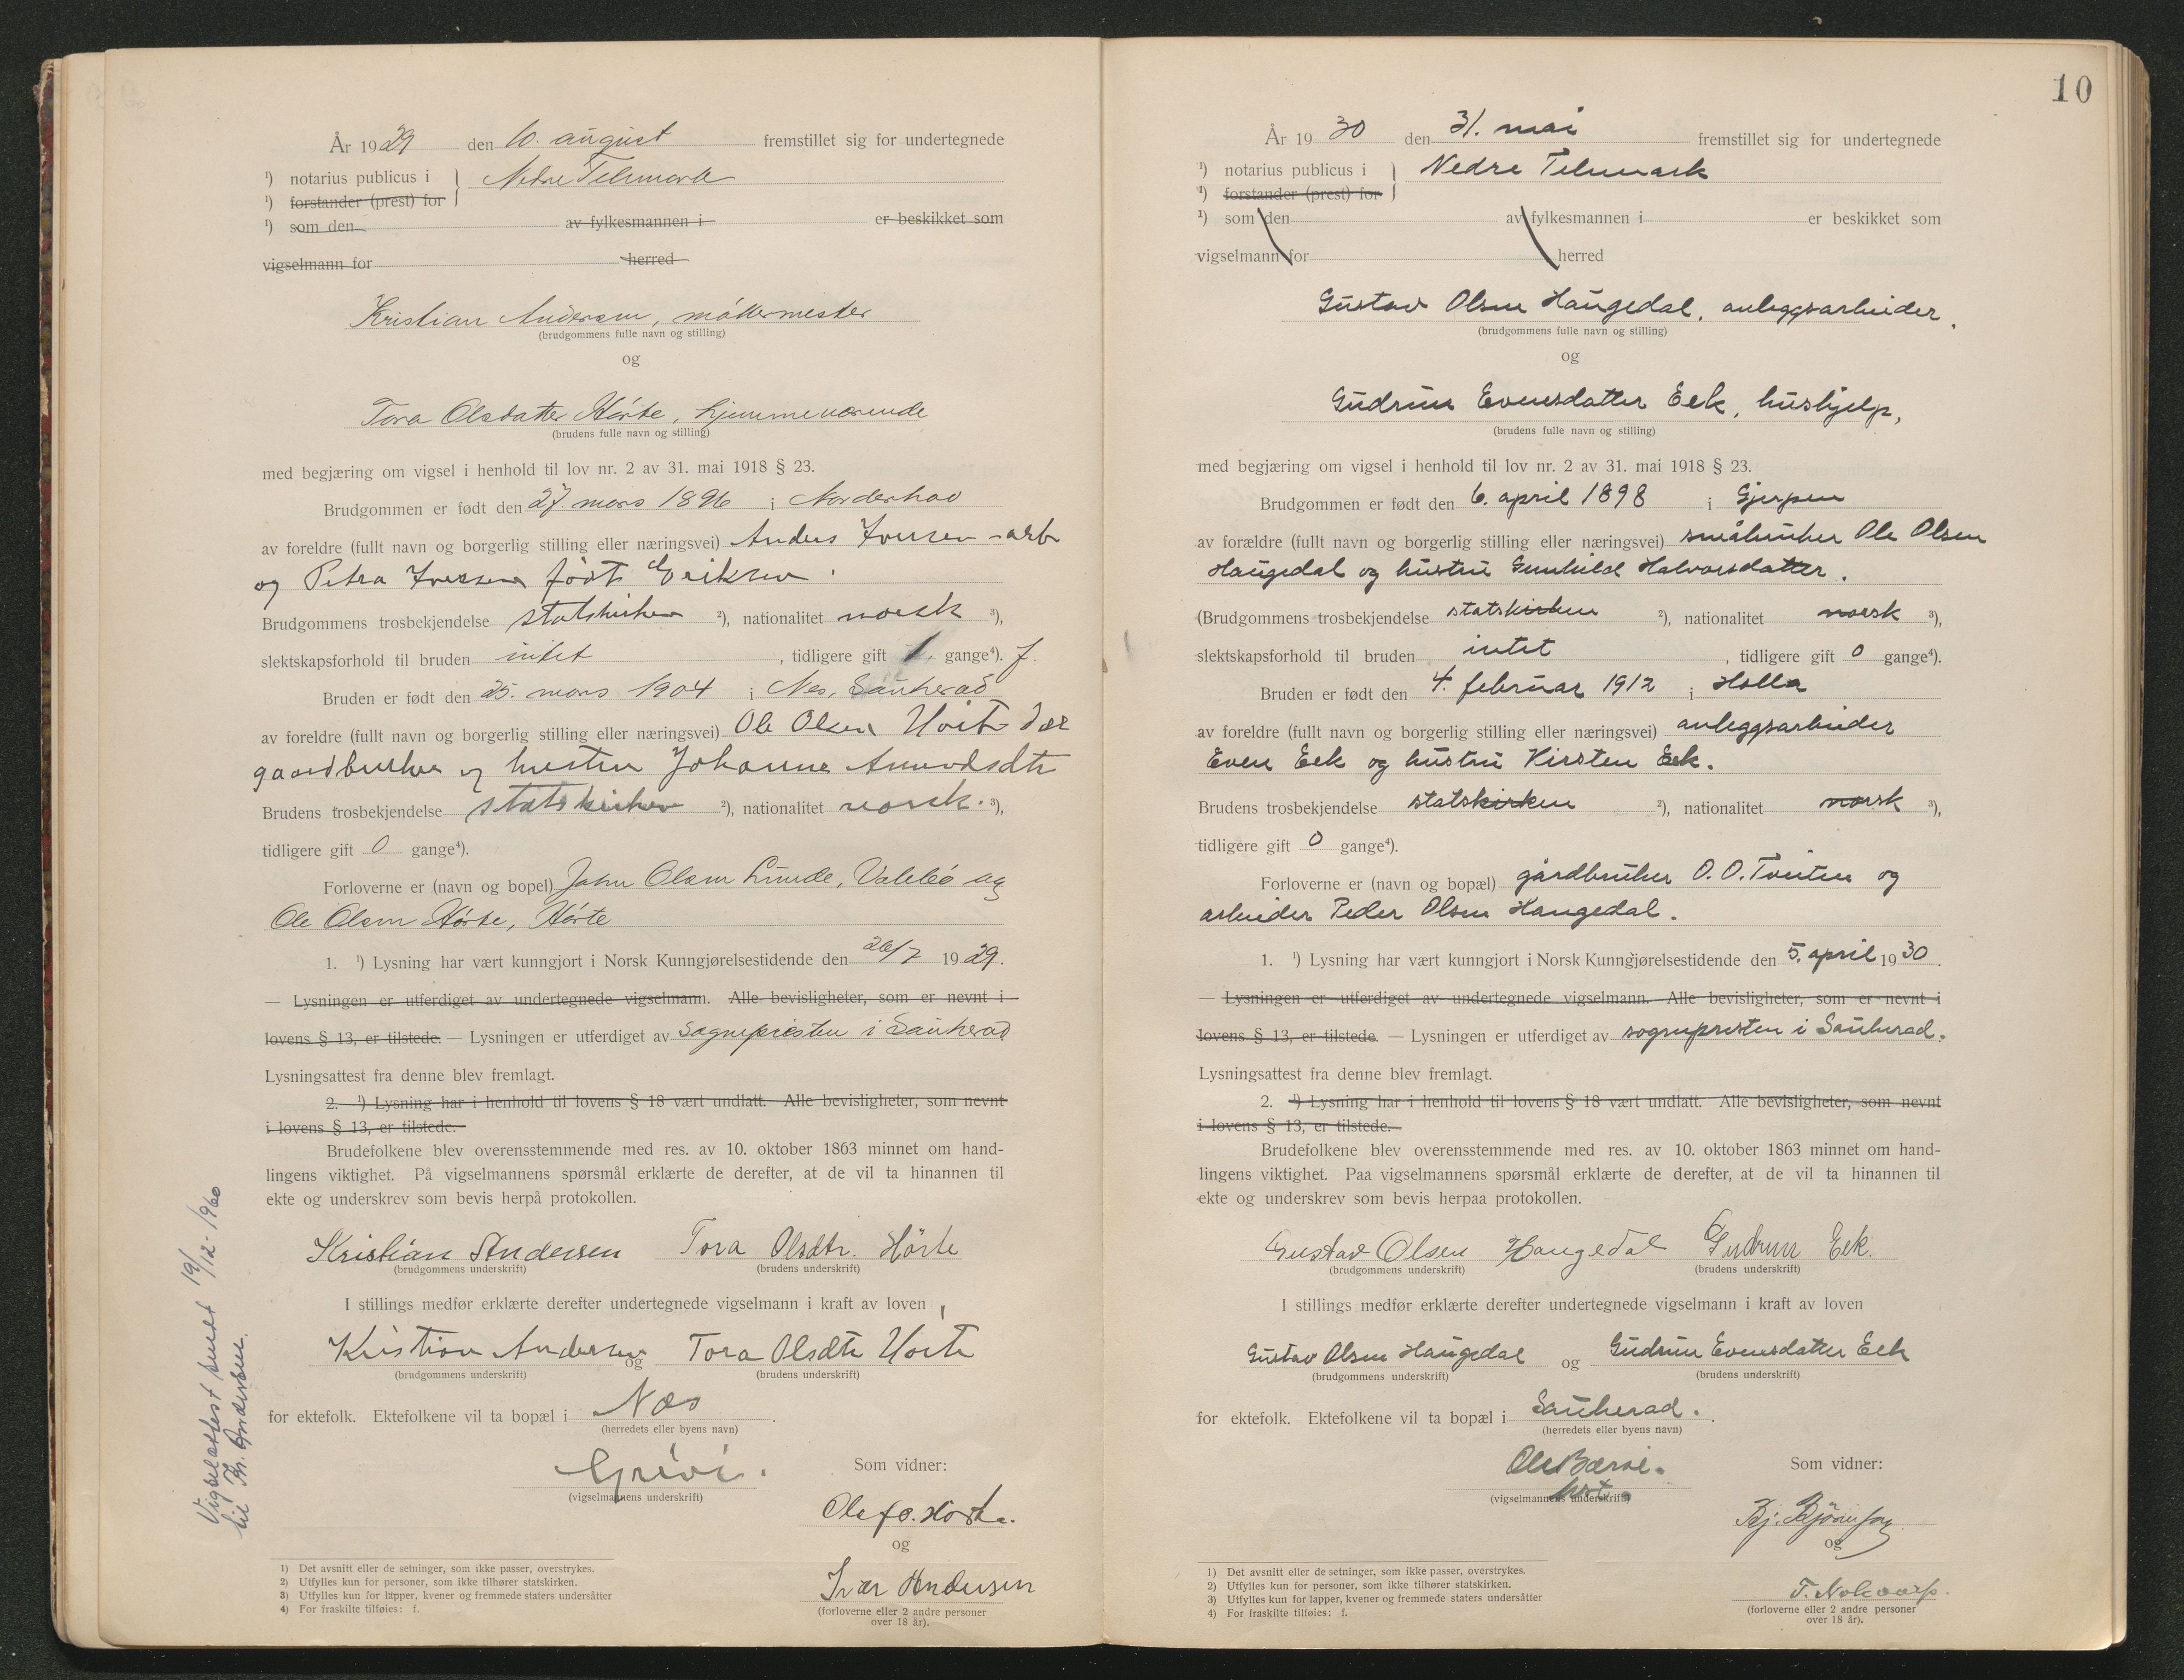 År 1929 den 10. august fremstillet sig for undertegnede
¹) notarius publicus i } Nedre Telemark
¹) forstander (prest) for
¹) som den av fylkesmannen i er beskikket som
vigselmann for herred
Kristian Andersen, møllermester
(brudgommens fulle navn og stilling)
og
Tora Olsdatter Hörte, hjemmeværende
(brudens fulle navn og stilling)
med begjæring om vigsel i henhold til lov nr. 2 av 31. mai 1918 § 23.
Brudgommen er født den 27. mars 1896 i Norderhov
av foreldre (fullt navn og borgerlig stilling eller næringsvei) Anders Iversen - arb
og Petra Iversen født Eriksen.
Brudgommens trosbekjendelse statskirken ²), nationalitet norsk ³),
slektskapsforhold til bruden intet, tidligere gift 1 gange⁴). f.
Bruden er født den 25. mars 1904 i Nes, Sauherad
av foreldre (fullt navn og borgerlig stilling eller næringsvei) Ole Olsen Hörte
gaardbruker og hustru Johanne Amundsdtr
Brudens trosbekjendelse statskirken ²), nationalitet norsk. ³),
tidligere gift 0 gange⁴).
Forloverne er (navn og bopel) John Olsen Lunde, Valebö og
Ole Olsen Hörte, Hörte
1. ¹) Lysning har vært kunngjort i Norsk Kunngjørelsestidende den 26/7 1929.
— Lysningen er utferdiget av undertegnede vigselmann. Alle bevisligheter, som er nevnt i
lovens § 13, er tilstede. — Lysningen er utferdiget av sogneprästen i Sauherad
Lysningsattest fra denne blev fremlagt.
2. ¹) Lysning har i henhold til lovens § 18 vært undlatt. Alle bevisligheter, som nevnt
i lovens § 13, er tilstede.
Brudefolkene blev overensstemmende med res. av 10. oktober 1863 minnet om hand-
lingens viktighet. På vigselmannens spørsmål erklærte de derefter, at de vil ta hinannen til
ekte og underskrev som bevis herpå protokollen.
Kristian Andersen Tora Olsdtr. Hörte
(brudgommens underskrift) (brudens underskrift)
I stillings medfør erklærte derefter undertegnede vigselmann i kraft av loven
Kristian Andersen og Tora Olsdtr Hörte
(brudgommens underskrift) (brudens underskrift)
for ektefolk. Ektefolkene vil ta bopæl i Nes.
(herredets eller byens navn)
Grivi.
(vigselmannens underskrift)
Som vidner:
Ole O. Hörte.
og
Ivar Andersen
(forloverne eller 2 andre personer
over 18 år).
1) Det avsnitt eller de setninger, som ikke passer, overstrykes.
2) Utfylles kun for personer, som ikke tilhører statskirken.
3) Utfylles kun for lapper, kvener og fremmede staters undersåtter
4) For fraskilte tilføies: f.
Vigselattest sendt 19/12-1960
til Kr. Andersen.
10
År 1930 den 31. mai fremstillet sig for undertegnede
¹) notarius publicus i } Nedre Telemark
¹) forstander (prest) for
¹) som den av fylkesmannen i er beskikket som
vigselmann for herred
Gustav Olsen Haugedal, anleggsarbeider.
(brudgommens fulle navn og stilling)
og
Gudrun Evensdatter Eek, hushjelp,
(brudens fulle navn og stilling)
med begjæring om vigsel i henhold til lov nr. 2 av 31. mai 1918 § 23.
Brudgommen er født den 6. april 1898 i Gjerpen
av forældre (fullt navn og borgerlig stilling eller næringsvei) småbruker Ole Olsen
Haugedal og hustru Gunhild Halvorsdatter.
(Brudgommens trosbekjendelse statskirken ²), nationalitet norsk ³),
slektskapsforhold til bruden intet, tidligere gift 0 gange⁴).
Bruden er født den 4. februar 1912 i Holla
av foreldre (fullt navn og borgerlig stilling eller næringsvei) anleggsarbeider
Even Eek og hustru Kirsten Eek.
Brudens trosbekjendelse statskirken ²), nationalitet norsk ³),
tidligere gift 0 gange⁴).
Forloverne er (navn og bopæl) gårdbruker O. O. Tveiten og
arbeider Peder Olsen Haugedal.
1. ¹) Lysning har vært kunngjort i Norsk Kunngjørelsestidende den 5. april 1930.
— Lysningen er utferdiget av undertegnede vigselmann. Alle bevisligheter, som er nevnt i
lovens § 13, er tilstede. — Lysningen er utferdiget av sognepresten i Sauherad.
Lysningsattest fra denne blev fremlagt.
2. ¹) Lysning har i henhold til lovens § 18 vært undlatt. Alle bevisligheter, som nevnt
i lovens § 13, er tilstede.
Brudefolkene blev overensstemmende med res. av 10. oktober 1863 minnet om hand-
lingens viktighet. Paa vigselmannens spørsmål erklærte de derefter, at de vil ta hinannen til
ekte og underskrev som bevis herpaa protokollen.
Gustav Olsen Haugedal Gudrun Eek.
(brudgommens underskrift) (brudens underskrift)
I stillings medfør erklærte derefter undertegnede vigselmann i kraft av loven
Gustav Olsen Haugedal og Gudrun Evensdatter Eek
(brudgommens underskrift) (brudens underskrift)
for ektefolk. Ektefolkene vil ta bopæl i Sauherad.
(herredets eller byens navn)
Ole Barsi.
konst.
(vigselmannens underskrift)
Som vidner:
Bj. Björnson
og
(forloverne eller 2 andre personer
over 18 år).
1) Det avsnitt eller de setninger, som ikke passer, overstrykes.
2) Utfylles kun for personer, som ikke tilhører statskirken.
3) Utfylles kun for lapper, kvener og fremmede staters undersåtter
4) For fraskilte tilføies: f.